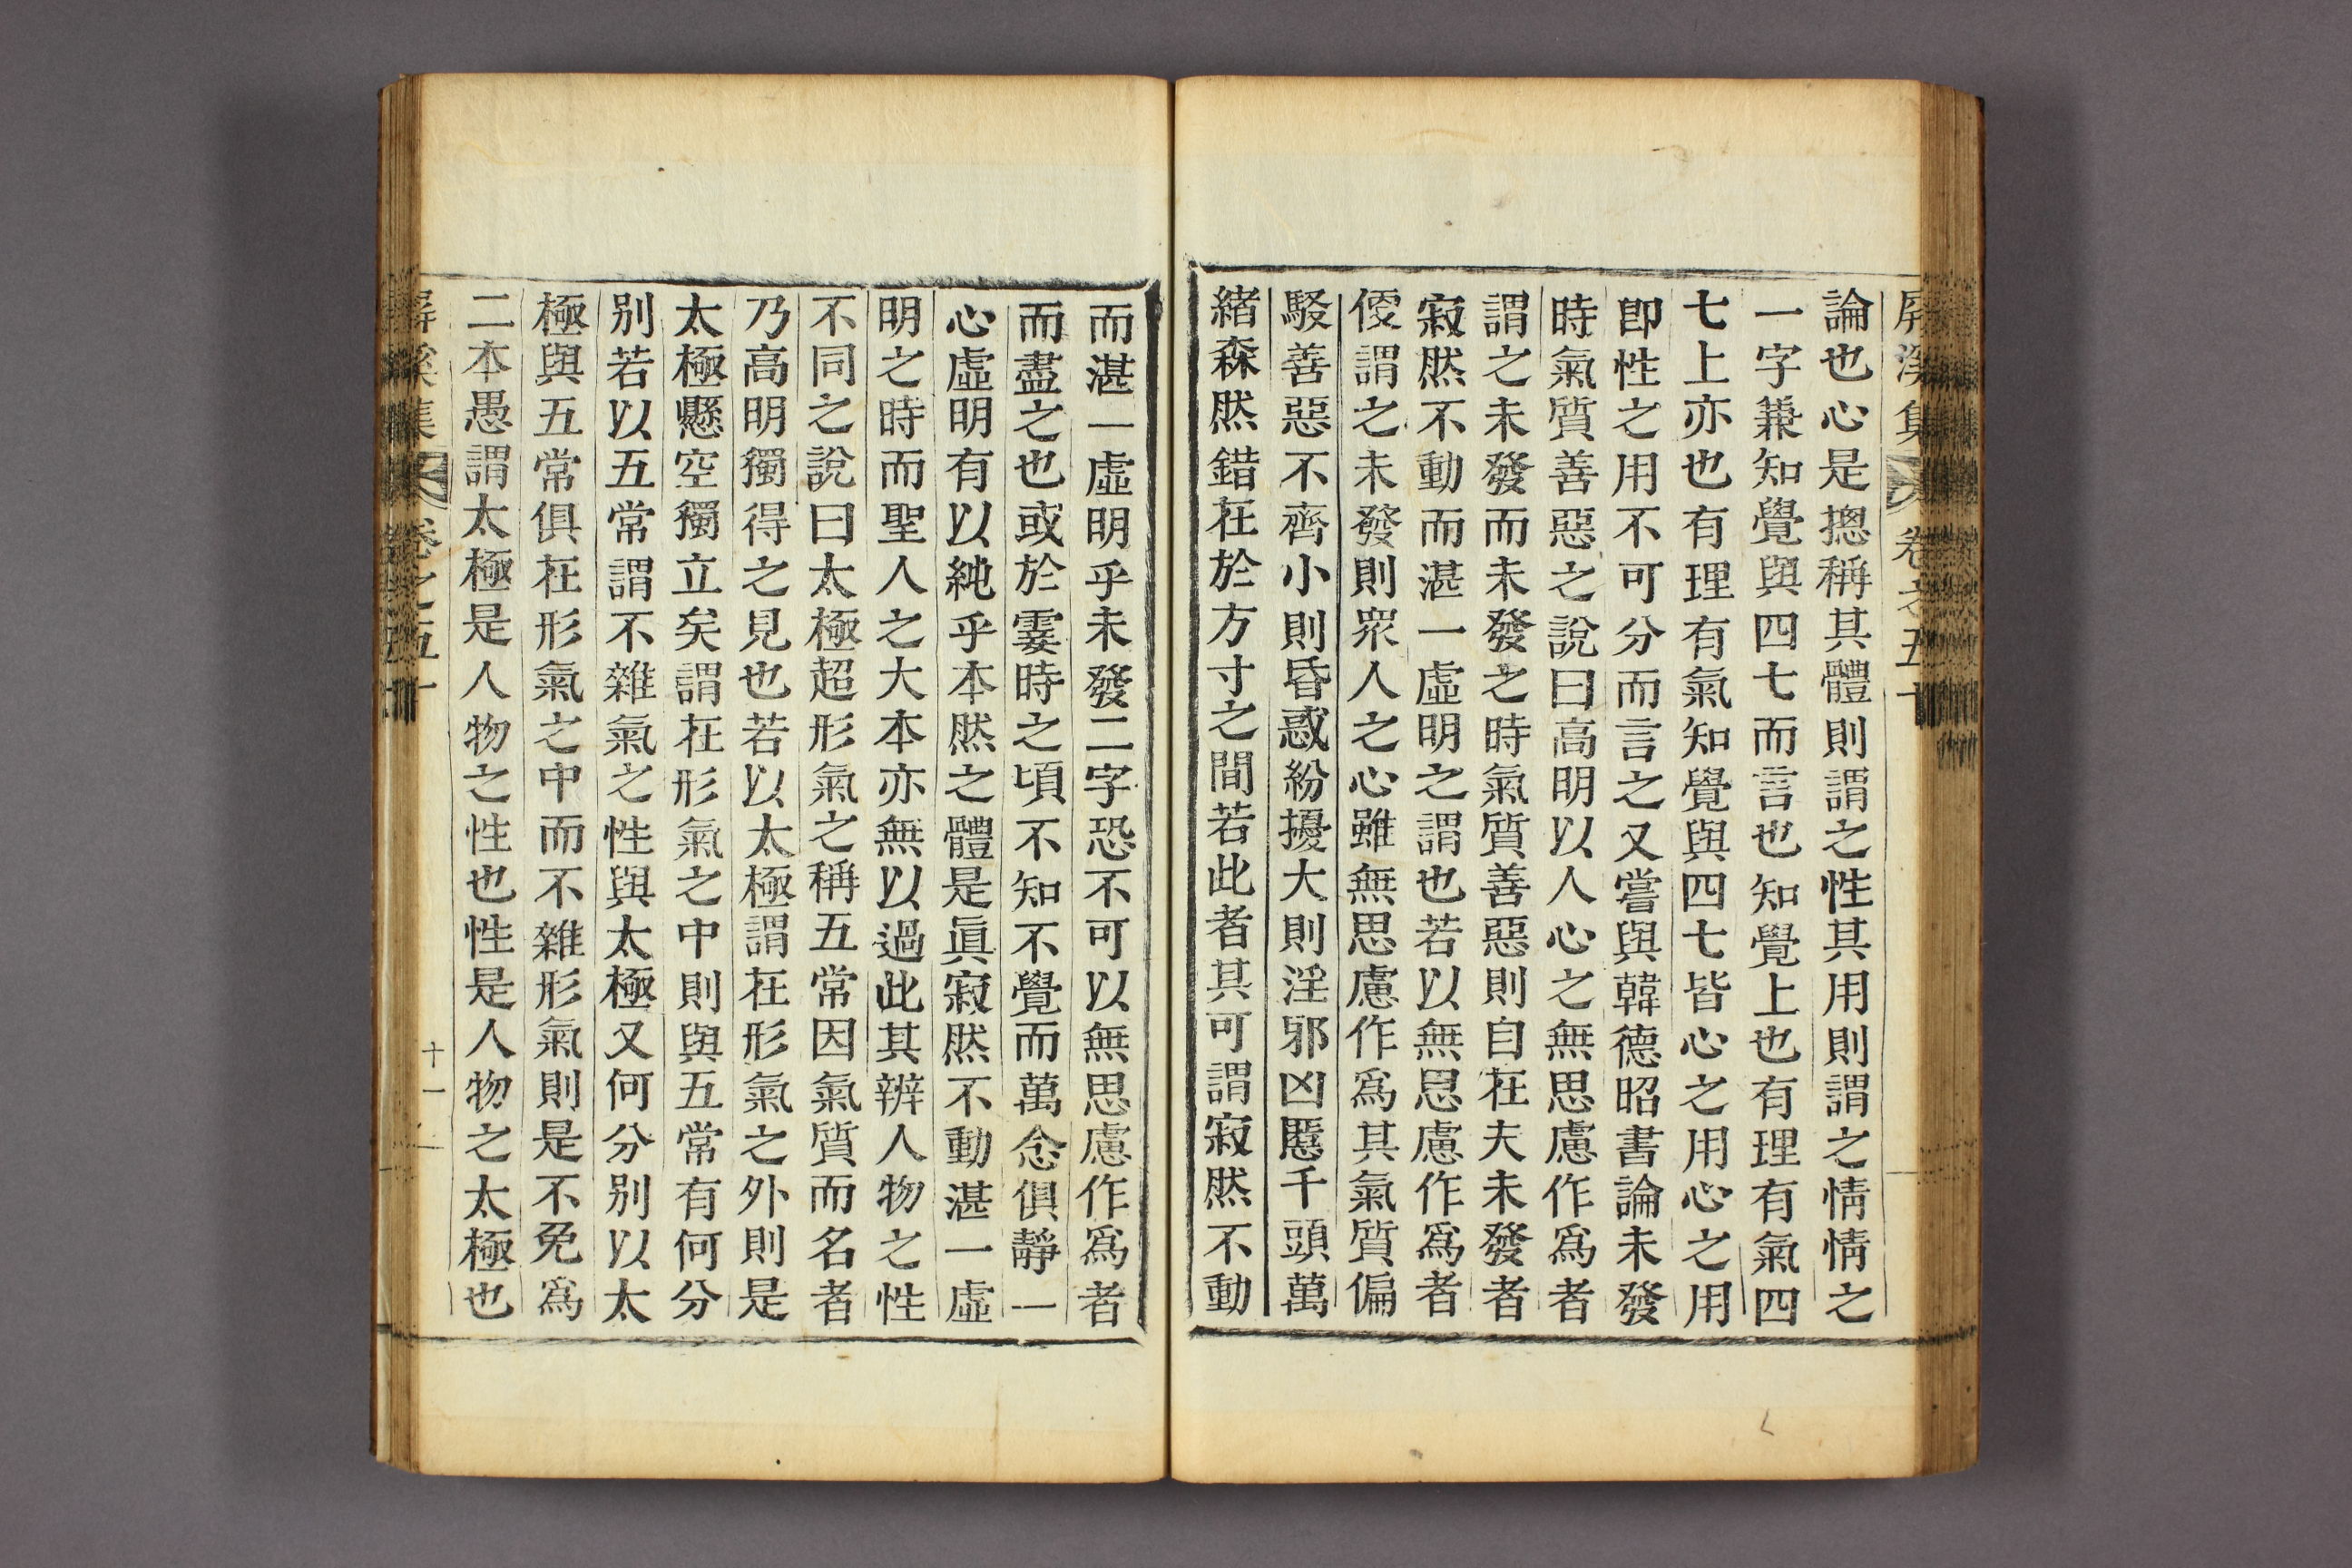 屛溪集 卷之五十
論也心是摠稱其體則謂之性其用則謂之情情之
一字兼知覺與四七而言也知覺上也有理有氣四
七上亦也有理有氣知覺與四七皆心之用心之用
卽性之用不可分而言之又嘗與韓德昭書論未發
時氣質善惡之說曰高明以人心之無思慮作爲者
謂之未發而未發之時氣質善惡則自在夫未發者
寂然不動而湛一虛明之謂也若以無思慮作爲者
便謂之未發則衆人之心雖無思慮作爲其氣質偏
駁善惡不齊小則昏惑紛擾大則淫邪凶慝千頭萬
緖森然錯在於方寸之間若此者其可謂寂然不動
而湛一虛明乎未發二字恐不可以無思慮作爲者
而盡之也或於霎時之頃不知不覺而萬念俱靜一
心虛明有以純乎本然之體是眞寂然不動湛一虛
明之時而聖人之大本亦無以過此其辨人物之性
不同之說曰太極超形氣之稱五常因氣質而名者
乃高明獨得之見也若以太極謂在形氣之外則是
太極懸空獨立矣謂在形氣之中則與五常有何分
別若以五常謂不雜氣之性與太極又何分別以太
極與五常俱在形氣之中而不雜形氣則是不免爲
二本愚謂太極是人物之性也性是人物之太極也
屛溪集 卷之五十 十一